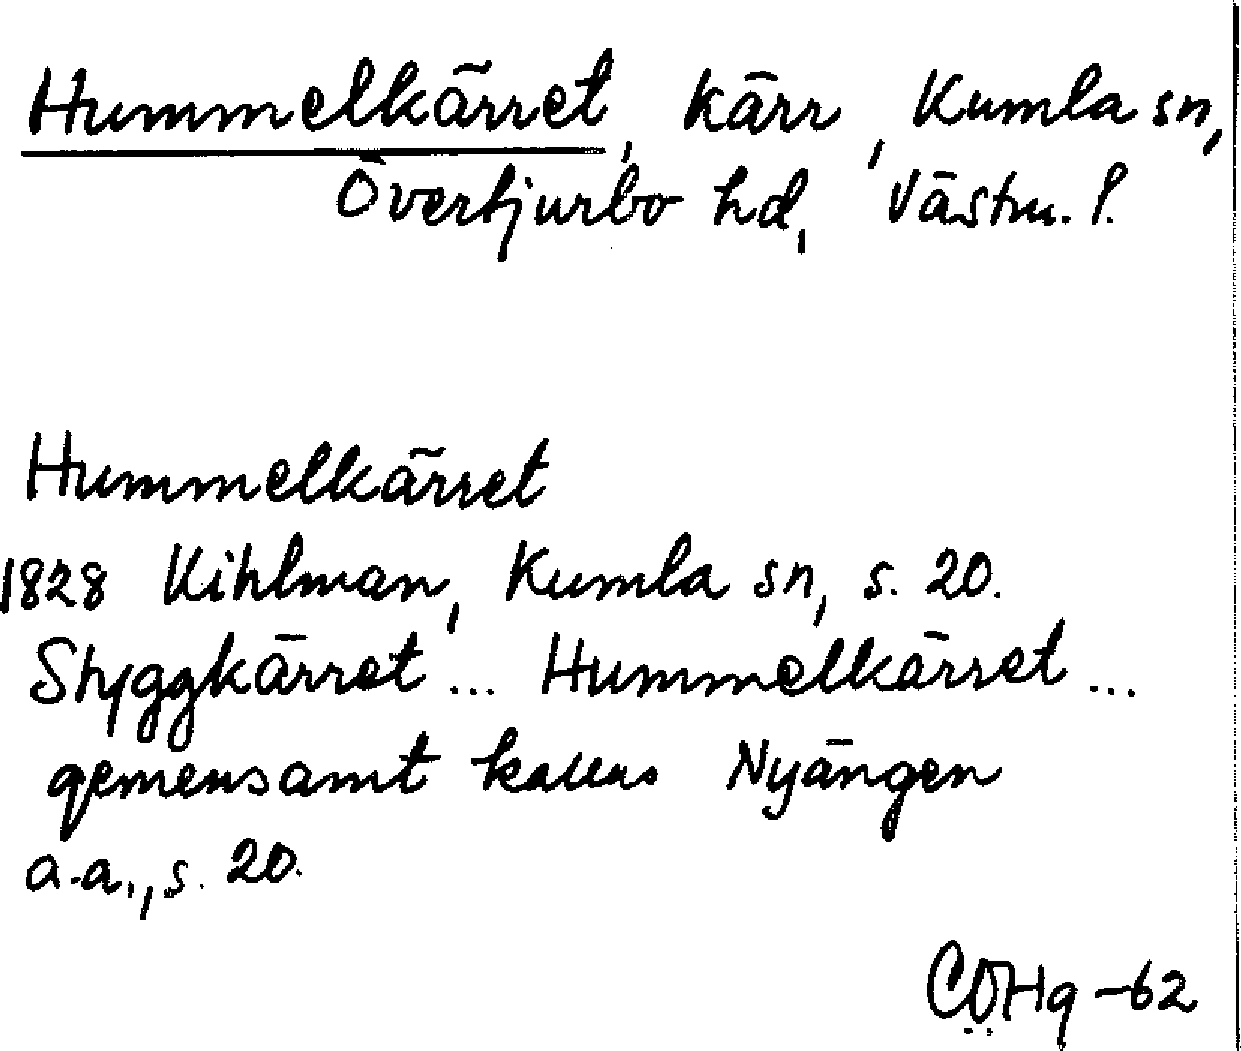 Hummelkärret, kärr, Kumla sn,
Övertjurbo hd, Västm. l.
Hummelkärret
1828 Kihlman, Kumla sn, s. 20.
Styggkärret ... Hummelkärret ...
gemensamt kallas Nyängen
a.a., s. 20.
-62